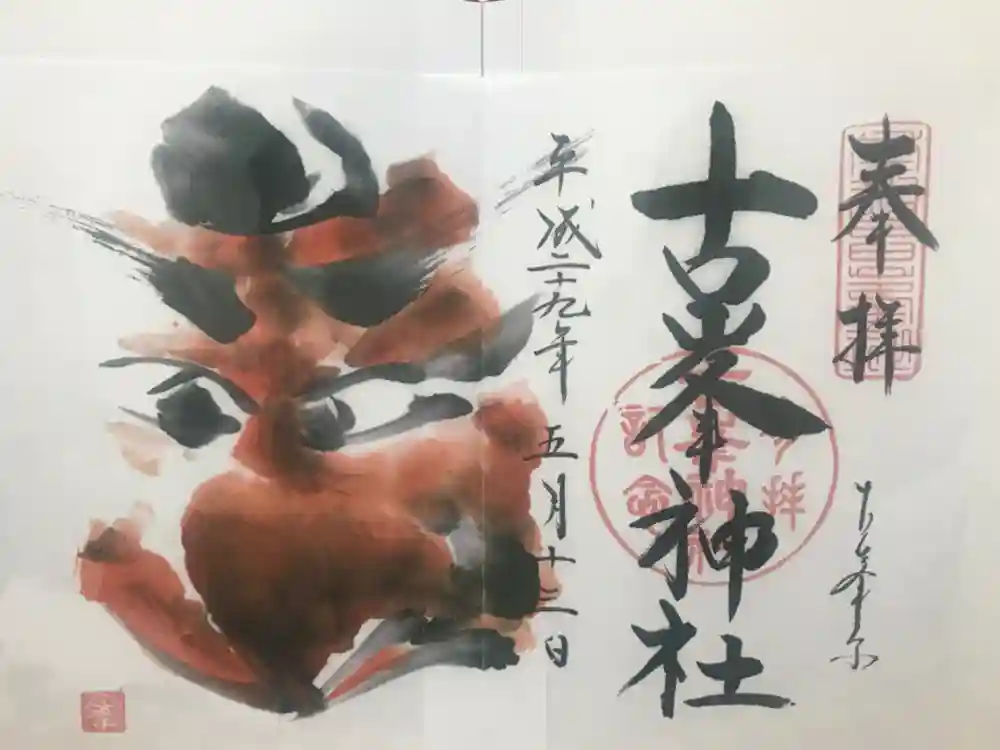 奉拝
古峯神社
参拝
古峯神社
記念
平成二十九年 五月十二日